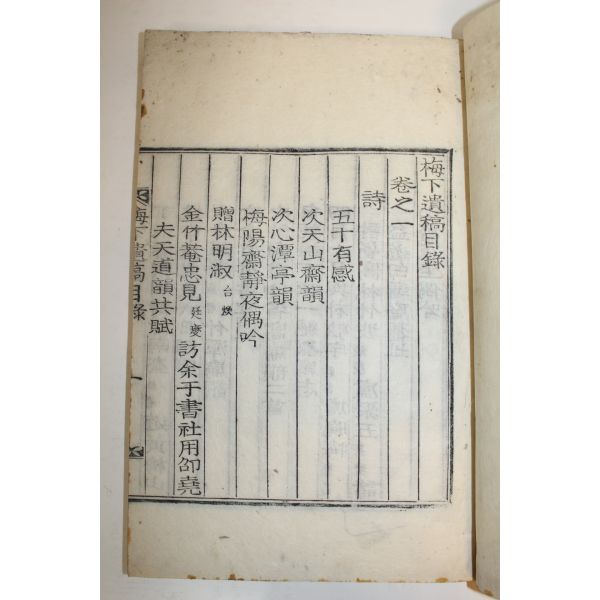 梅下遺稿目錄
卷之一
詩
五十有感
次天山齋韻
次心潭亭韻
梅陽齋靜夜偶吟
贈林明淑台燮
金竹菴忠見廷夔訪余于書社用邵堯
夫天道韻共賦
梅下遺稿目錄 一